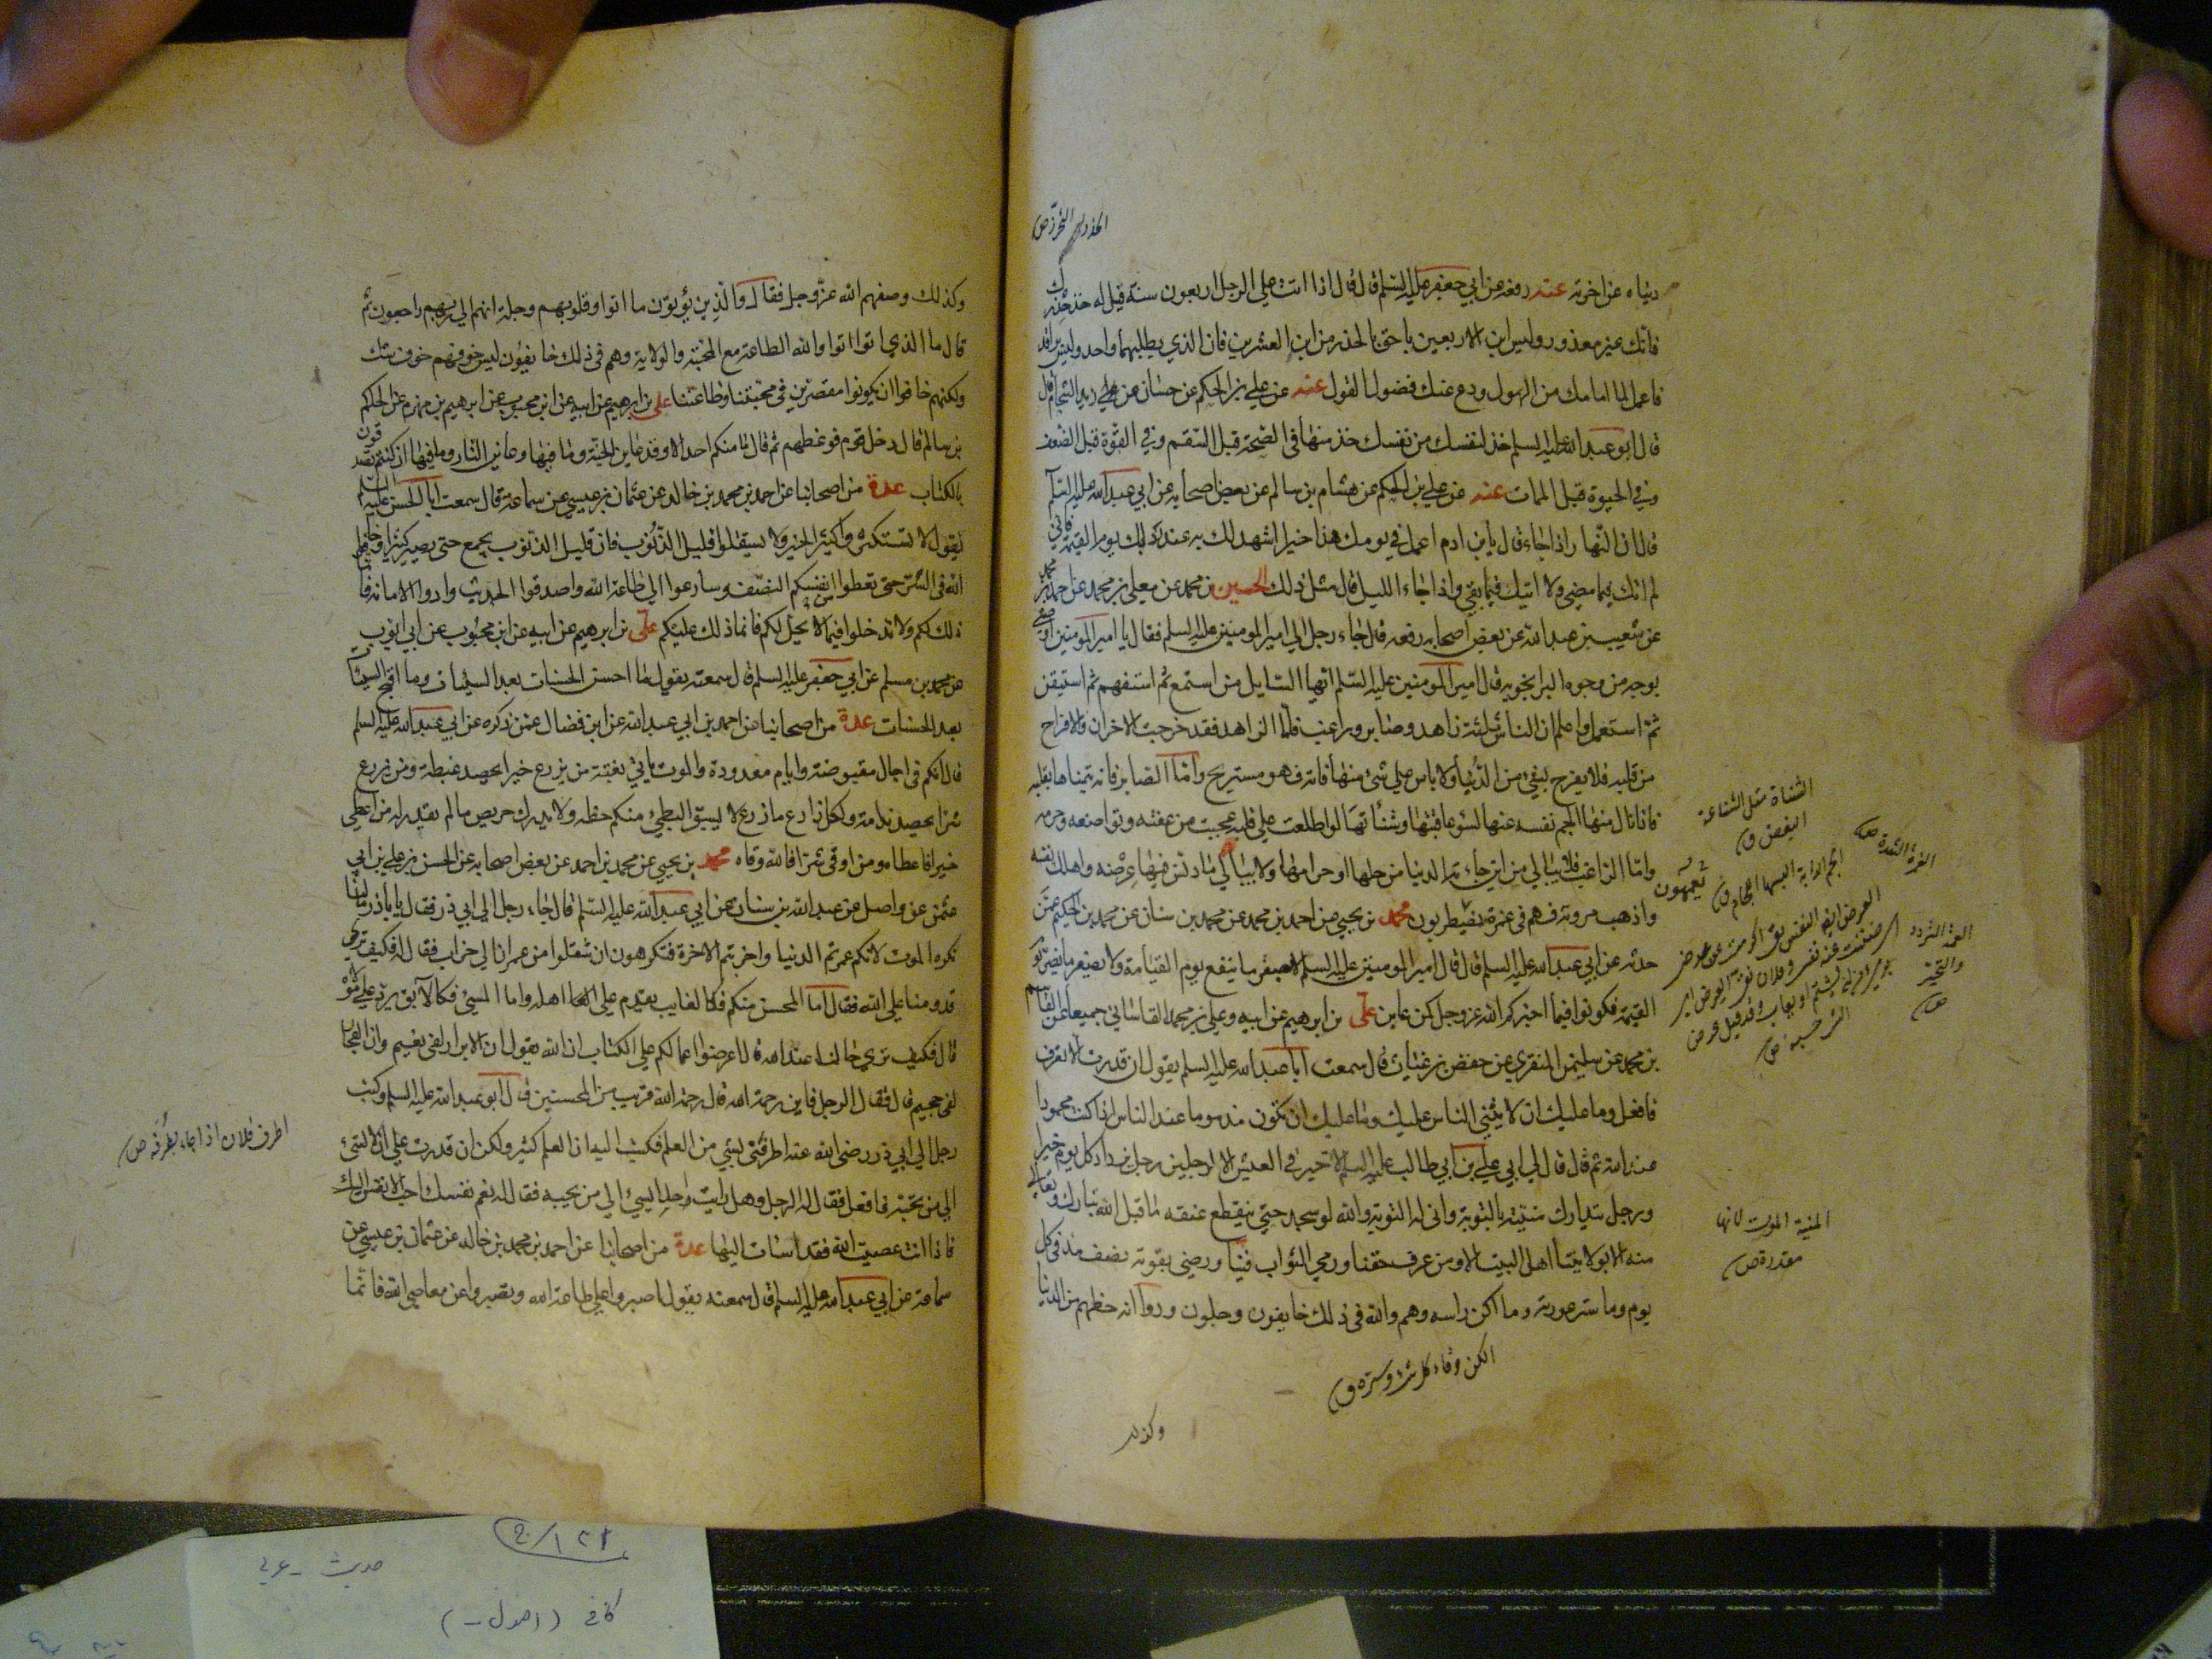 الحذر التحرز ص
دنياه عن اخرته عنه رفعه عن ابي جعفر عليه السلم قال قال اذا اتت على الرجل اربعون سنة قيل له خذ حذرك
فانك غير معذور وليس ابن الاربعين باحق بالحذر من ابن العشرين فان الذي يطلبهما واحد وليس براقد
فاعمل لما امامك من الهول ودع عنك فضول القول عنه عن علي بن الحكم عن حسان عن زيد الشحام قال
قال ابو عبد الله عليه السلم خذ لنفسك من نفسك خذ منها في الصحة قبل السقم وفي القوة قبل الضعف
وفي الحيوة قبل الممات عنه عن علي بن الحكم عن هشام بن سالم عن بعض اصحابه عن ابي عبد الله عليه السلم
قال ان النهار اذا جاء قال يا بن ادم اعمل في يومك هذا خيرا اشهد لك به عند ربك يوم القيمة فاني
لم اتك فيما مضى ولا اتيك فيما بقي واذا جاء الليل قال مثل ذلك الحسين بن محمد عن معلى بن محمد عن احمد بن محمد
عن شعيب بن عبد الله عن بعض اصحابه رفعه قال جاء رجل الى امير المومنين عليه السلم فقال يا امير المومنين اوصني
بوجه من وجوه البر انجو به قال امير المومنين عليه السلم ايها السايل من استمع ثم استفهم ثم استيقن
ثم استعمل واعلم ان الناس ثلثة زاهد وصابر وراغب فاما الزاهد فقد خرجت الاحزان والافراح
من قلبه فلا يفرح بشيء من الدنيا ولا ياس على شيء منها فاته فهو مستريح واما الصابر فانه يتمناها بقلبه
فاذا نال منها الجم نفسه عنها لسوء عاقبتها وشنأتها لو اطلعت على قلبه عجبت من عفته وتواضعه وحزمه
واما الراغب فلا يبالي من اين جاءته الدنيا من حلها او حرامها ولا يبالي ما دنس فيها عرضه واهلك نفسه
واذهب مروته فهم في غمرة يضطربون محمد بن يحيى عن احمد بن محمد عن محمد بن سنان عن محمد بن الحكيم عمن
حدثه عن ابي عبد الله عليه السلم قال قال امير المومنين عليه السلم لا يصغر ما ينفع يوم القيامة ولا يصغر ما يضر يوم
القيمة فكونوا فيما اخبركم الله عز وجل كمن عاين علي بن ابرهيم عن ابيه وعلي بن محمد القاساني جميعا عن القاسم
بن محمد عن سليمن المنقري عن حفص بن غياث قال سمعت ابا عبد الله عليه السلم يقول ان قدرت الا تعرف
فافعل وما عليك ان لا يثني الناس عليك وما عليك ان تكون مذموما عند الناس اذا كنت محمودا
عند الله ثم قال قال لي ابي علي بن ابي طالب عليه السلم لا خير في العيش الا لرجلين رجل يزداد كل يوم خيرا
ورجل يتدارك منيته بالتوبة وانى له التوبة والله لو سجد حتى ينقطع عنقه ما قبل الله تبارك وتعالى
منه الا بولايتنا اهل البيت الا ومن عرف حقنا ورجى الثواب فينا ورضي بقوته نصف مد في كل
يوم وما ستر عورته وما اكن راسه وهم والله في ذلك خايفون وجلون ودوا انه حظهم من الدنيا
الشناة مثل الشناعة
البغض ق
الغمرة الشدة ص
الجم الدابة البسها اللجام ق
يعمهون
العمه التردد
والتحير
ص
المنية الموت لانها
مقدرة ص
الكن وقاء كل شيء وستره ق
وكذلك
وكذلك وصفهم الله عز وجل فقال والذين يؤتون ما اتوا وقلوبهم وجلة انهم الى ربهم راجعون ثم
قال ما الذي اتوا اتوا والله الطاعة مع المحبة والولاية وهم في ذلك خايفون ليس خوفهم خوف شك
ولكنهم خافوا ان يكونوا مقصرين في محبتنا وطاعتنا علي بن ابرهيم عن ابيه عن ابن محبوب عن ابرهيم بن مهزم عن الحكم
بن سالم قال دخل قوم فوعظهم ثم قال ما منكم احد الا وقد عاين الجنة وما فيها وعاين النار وما فيها ان كنتم تصدقون
بالكتاب عدة من اصحابنا عن احمد بن محمد بن خالد عن عثمان بن عيسى عن سماعة قال سمعت ابا الحسن عليه السلم
يقول لا تستكثروا كثير الخير ولا تستقلوا قليل الذنوب فان قليل الذنوب يجمع حتى يصير كثيرا وخافوا
الله في السر حتى تعطوا من انفسكم النصف وسارعوا الى طاعة الله واصدقوا الحديث وادوا الامانة فانما
ذلك لكم ولا تدخلوا فيما لا يحل لكم فانما ذلك عليكم علي بن ابرهيم عن ابيه عن ابن محبوب عن ابي ايوب
عن محمد بن مسلم عن ابي جعفر عليه السلم قال سمعته يقول ما احسن الحسنات بعد السيئات وما اقبح السيئات
بعد الحسنات عدة من اصحابنا عن احمد بن ابي عبد الله عن ابن فضال عمن ذكره عن ابي عبد الله عليه السلم
قال انكم في اجال مقبوضة وايام معدودة والموت ياتي بغتة من يزرع خيرا يحصد غبطة ومن يزرع
شرا يحصد ندامة ولكل زارع ما زرع لا يسبق البطيء منكم حظه ولا يدرك حريص ما لم يقدر له من اعطي
خيرا فالله اعطاه ومن اوقي شرا فالله وقاه محمد بن يحيى عن محمد بن احمد عن بعض اصحابه عن الحسن بن علي بن ابي
عثمن عن واصل عن عبد الله بن سنان عن ابي عبد الله عليه السلم قال جاء رجل الى ابي ذر فقال يا با ذر ما لنا
نكره الموت لانكم عمرتم الدنيا واخربتم الاخرة فتكرهون ان تنقلوا من عمران الى خراب فقال له فكيف ترى
قدومنا على الله فقال اما المحسن منكم فكالغايب يقدم على اهله واما المسيء فكالابق يرد على مولاه
قال فكيف ترى حالنا عند الله قال اعرضوا اعمالكم على الكتاب ان الله يقول ان الابرار لفي نعيم وان الفجار
لفي جحيم قال فقال الرجل فاين رحمة الله قال رحمة الله قريب من المحسنين قال ابو عبد الله عليه السلم وكتب
رجل الى ابي ذر رضي الله عنه اطرفني بشيء من العلم فكتب اليه ان العلم كثير ولكن ان قدرت على ان لا تسيء
الى من تحبه فافعل فقال له الرجل وهل رايت احدا يسيء الى من يحبه فقال له نعم نفسك احب الانفس اليك
فاذا انت عصيت الله فقد اسات اليها عدة من اصحابنا عن احمد بن محمد بن خالد عن عثمان بن عيسى عن
سماعة عن ابي عبد الله عليه السلم قال سمعته يقول اصبروا على طاعة الله وتصبروا عن معاصي الله فانما
اطرف فلان اذا جاء بطرفة ص
حديث - عربي
كافي (اصول -)